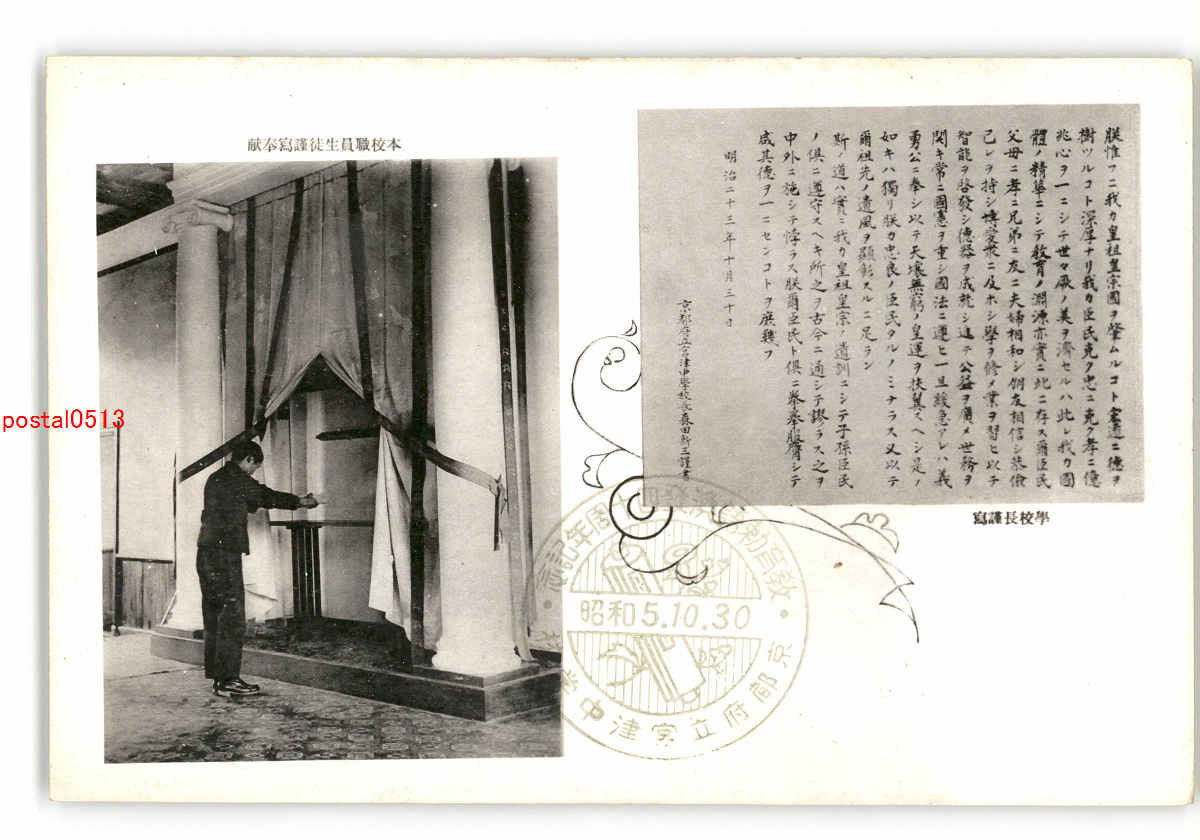 朕惟フニ我カ皇祖皇宗國ヲ肇ムルコト宏遠ニ德ヲ
樹ツルコト深厚ナリ我カ臣民克ク忠ニ克ク孝ニ億
兆心ヲ一ニシテ世々厥ノ美ヲ濟セルハ此レ我カ國
體ノ精華ニシテ教育ノ淵源亦實ニ此ニ存ス爾臣民
父母ニ孝ニ兄弟ニ友ニ夫婦相和シ朋友相信シ恭儉
己レヲ持シ博愛衆ニ及ホシ學ヲ修メ業ヲ習ヒ以テ
智能ヲ啓發シ德器ヲ成就シ進テ公益ヲ廣メ世務ヲ
開キ常ニ國憲ヲ重シ國法ニ遵ヒ一旦緩急アレハ義
勇公ニ奉シ以テ天壤無窮ノ皇運ヲ扶翼スヘシ是ノ
如キハ獨リ朕カ忠良ノ臣民タルノミナラス又以テ
爾祖先ノ遺風ヲ顯彰スルニ足ラン
斯ノ道ハ實ニ我カ皇祖皇宗ノ遺訓ニシテ子孫臣民
ノ俱ニ遵守スヘキ所之ヲ古今ニ通シテ謬ラス之ヲ
中外ニ施シテ悖ラス朕爾臣民ト俱ニ拳拳服膺シテ
咸其德ヲ一ニセンコトヲ庶幾フ
明治二十三年十月三十日
京都府立宮津中學校長 田新三謹書
學校長謹寫
本校職員生徒謹寫奉献
周年記念
昭和5.10.30
京都府立宮津中學
postal0513